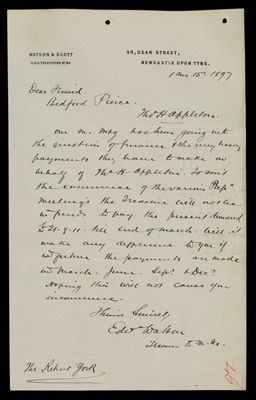 WATSON & SCOTT
48, DEAN STREET,
NEWCASTLE UPON TYNE.
1 mo 15th 1897
Dear Friend
Bedford Pierce.
Thos H Appleton.
our m. mtg has been going into
the question of finance & the very heavy
payments they have to make on
behalf of Thos H Appleton. To suit
the convenience of the various Prep
meetings the Treasurer will not be
in funds to pay the present demand
till end of march. Will it
make any difference to you if
in future the payments are made
in March. June. Sept & Dec?
Hoping this will not cause you
inconvenience
Thine Sincerely
Edwd Watson
Treasurer to M. Mg.
The Retreat York